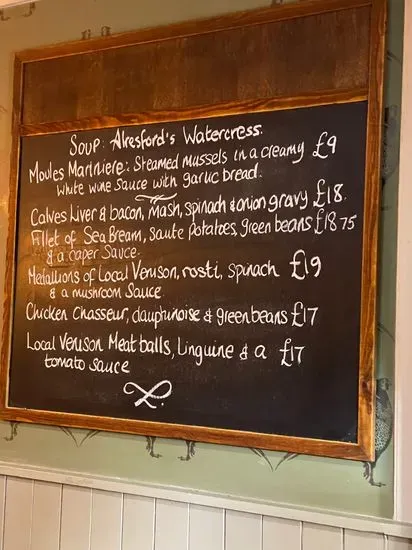 Soup: Alresford's Watercress.
Moules Mariniere: Steamed mussels in a creamy £9
white wine sauce with garlic bread.
Calves Liver & bacon, mash, spinach & onion gravy £18.
Fillet of Sea Bream, saute potatoes, green beans £18.75
& a caper sauce.
Medallions of Local Venison, rosti, spinach £19
& a mushroom sauce
Chicken Chasseur, dauphinoise & green beans £17
Local Venison Meatballs, Linguine & a £17
tomato sauce